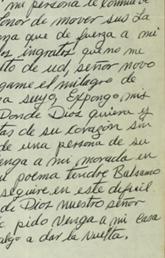 mi persona le
honor de mover sus la
ma que de fuerza a mi
los ingratos que no me
to de ud, señor novo
game el milagro de
a suya. Expongo mis
Donde Dios quiera y
tas de su corazón sin
de una persona de su
enga a mi morada en
ul poema tendre Balsamo
seguire en este dificil
de Dios nuestro señor
e pido venga a mi casa
algo a dar la vuelta.